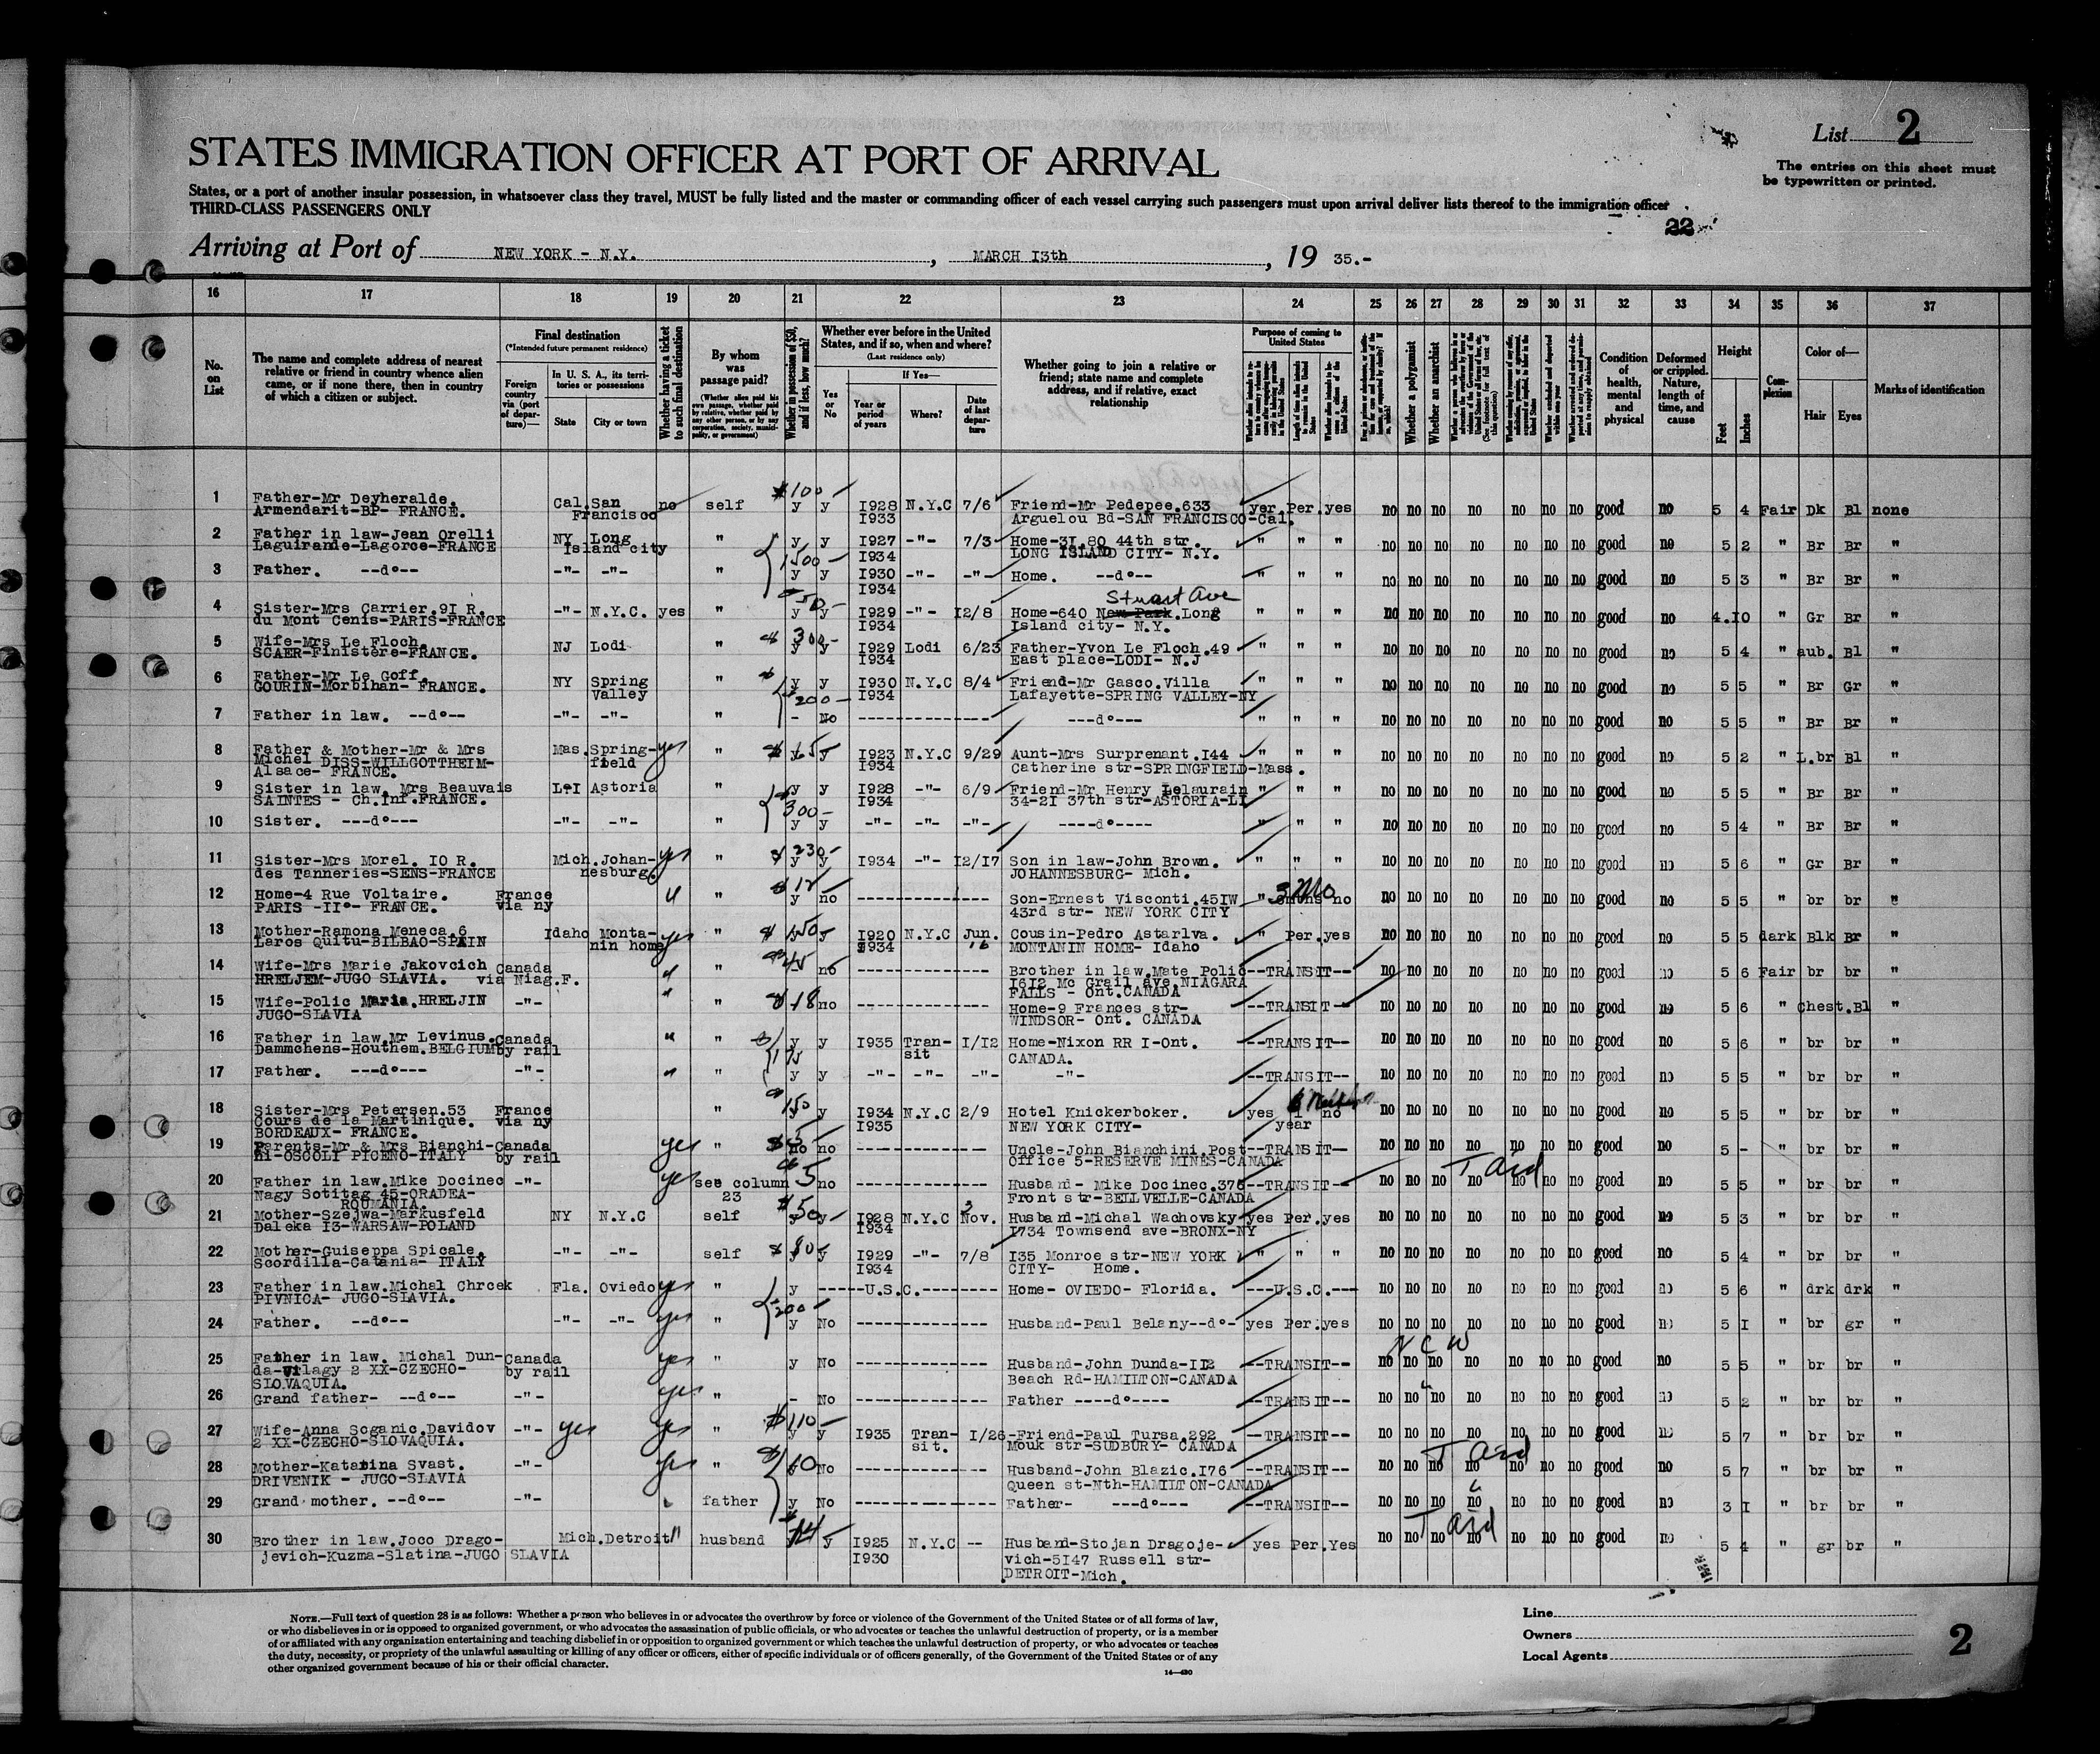 List 2
The entries on this sheet must
be typewritten or printed.
STATES IMMIGRATION OFFICER AT PORT OF ARRIVAL
States, or a port of another insular possession, in whatsoever class they travel, MUST be fully listed and the master or commanding officer of each vessel carrying such passengers must upon arrival deliver lists thereof to the immigration officer
THIRD-CLASS PASSENGERS ONLY
22
Arriving at Port of NEW YORK - N.Y. , MARCH I3th , 19 35.-
16 17 18 19 20 21 22 23 24 25 26 27 28 29 30 31 32 33 34 35 36 37
No. on List
The name and complete address of nearest relative or friend in country whence alien came, or if none there, then in country of which a citizen or subject.
Final destination
(*Intended future permanent residence)
Foreign country via (port of departure)—
In U. S. A., its territories or possessions
State City or town
Whether having a ticket to such final destination
By whom was passage paid?
(Whether alien paid his own passage, whether paid by relative, whether paid by any other person, or by any corporation, society, municipality, or government)
Whether in possession of $50, and if less, how much?
Whether ever before in the United States, and if so, when and where?
(Last residence only)
Yes or No
If Yes—
Year or period of years Where? Date of last departure
Whether going to join a relative or friend; state name and complete address, and if relative, exact relationship
Purpose of coming to United States
Whether a polygamist
Whether an anarchist
Condition of health, mental and physical
Deformed or crippled. Nature, length of time, and cause
Height
Feet Inches
Complexion
Color of—
Hair Eyes
Marks of identification
1 Father-Mr Deyheralde. Cal. San no self $100 y y I928 N.Y.C 7/6 Friend-Mr Pedepee.633 yer Per. yes no no no no no no no good no 5 4 Fair Dk Bl none
Armendarit-BP- FRANCE. Francisco I933 Arguelou Bd-SAN FRANCISCO-Cal.
2 Father in law-Jean Orelli NY Long " y y I927 -"- 7/3 Home-3I.80 44th str. " " " no no no no no no no good no 5 2 " Br Br "
Laguirande-Lagorce-FRANCE Island city 1500- I934 LONG ISLAND CITY- N.Y.
3 Father. --do-- -"- -"- " y y I930 -"- -"- Home. --do-- " " " no no no no no no no good no 5 3 " Br Br "
I934 Stuart Ave
4 Sister-Mrs Carrier.9I R. -"- N.Y.C. yes " 50- y y I929 -"- I2/8 Home-640 New Park.Long " " " no no no no no no no good no 4.I0 " Gr Br "
du Mont Cenis-PARIS-FRANCE I934 Island city- N.Y.
5 Wife-Mrs Le Floch. NJ Lodi " $ 300- y y I929 Lodi 6/23 Father-Yvon Le Floch.49 " " " no no no no no no no good no 5 4 " aub. Bl "
SCAER-Finistère-FRANCE. I934 East place-LODI- N.J
6 Father-Mr Le Goff. NY Spring " $ y y I930 N.Y.C 8/4 Friend-Mr Gasco.Villa " " " no no no no no no no good no 5 5 " Br Gr "
GOURIN-Morbihan- FRANCE. Valley 200- I934 Lafayette-SPRING VALLEY-NY
7 Father in law. --do-- -"- -"- " - No -------------- ---do--- " " " no no no no no no no good no 5 5 " Br Br "
8 Father & Mother-Mr & Mrs Mas. Spring- yes " $ 65 y I923 N.Y.C 9/29 Aunt-Mrs Surprenant.I44 " " " no no no no no no no good no 5 2 " L.br Bl "
Michel DISS-WILLGOTTHEIM- field I934 Catherine str-SPRINGFIELD-Mass.
Alsace- FRANCE.
9 Sister in law. Mrs Beauvais L-I Astoria " y y I928 -"- 6/9 Friend-Mr Henry Lelaurain " " " no no no no no no no good no 5 5 " Br Br "
SAINTES - Ch.Inf.FRANCE. 300- I934 34-2I 37th str-ASTORIA-LI
10 Sister. ---do--- -"- -"- " y y -"- -"- -"- ----do---- " " " no no no no no no no good no 5 4 " Br Br "
11 Sister-Mrs Morel. I0 R. Mich. Johan- yes " $ 230- y y I934 -"- I2/I7 Son in law-John Brown. " " " no no no no no no no good no 5 6 " Gr Br "
des Tanneries-SENS-FRANCE nesburg. JOHANNESBURG- Mich.
12 Home-4 Rue Voltaire. France " " $12 y no -------------- Son-Ernest Visconti.45IW " 3 Mo no no no no no no no no good no 5 5 " br br "
PARIS -IIo- FRANCE. via ny 43rd str- NEW YORK CITY
13 Mother-Ramona Meneca.6 Idaho Monta- yes " $ 150 y I920 N.Y.C Jun. Cousin-Pedro Astarlva. " Per. yes no no no no no no no good no 5 5 dark Blk Br "
Laros Quitu-BILBAO-SPAIN nin home I934 MONTANIN HOME- Idaho
14 Wife-Mrs Marie Jakovcich Canada " " $45 no -------------- Brother in law.Mate Polic --TRANSIT-- no no no no no no no good no 5 6 Fair br br "
HRELJEM-JUGO SLAVIA. via Niag.F. I6I2 Mc Grail ave.NIAGARA
FALLS - Ont.CANADA
15 Wife-Polic Maria.HRELJIN -"- " " $ 18 no -------------- Home-9 Frances str- --TRANSIT-- no no no no no no no good no 5 6 " chest. Bl "
JUGO-SLAVIA WINDSOR- Ont. CANADA
16 Father in law.Mr Levinus. Canada " " $ y y I935 Tran- I/I2 Home-Nixon RR I-Ont. --TRANSIT-- no no no no no no no good no 5 6 " br br "
Dammchens-Houthem.BELGIUM by rail 175 sit CANADA.
17 Father. ---do--- -"- " " y y -"- -"- -"- -"- --TRANSIT-- no no no no no no no good no 5 5 " br br "
18 Sister-Mrs Petersen.53 France " $ 150 y y I934 N.Y.C 2/9 Hotel Knickerboker. yes I no no no no no no no no good no 5 5 " br br "
Cours de la Martinique. via ny I935 NEW YORK CITY- year
BORDEAUX- FRANCE.
19 Parents-Mr & Mrs Bianchi- Canada yes " $ 5 no no -------------- Uncle-John Bianchini.Post --TRANSIT-- no no no no no no no good no 5 - " br br "
ni-OSCOLI PICENO-ITALY by rail Office 5-RESERVE MINES-CANADA
T Aid
20 Father in law.Mike Docinec -"- yes see column $ 5 no -------------- Husband- Mike Docinec.376 --TRANSIT-- no no no no no no no good no 5 5 " br br "
Nagy Sotitag 45-ORADEA- 23 Front str-BELLVELLE-CANADA
ROUMANIA.
21 Mother-Szejwa-Markusfeld NY N.Y.C self $50 y y I928 N.Y.C Nov. 3 Husband-Michal Wachovsky- yes Per. yes no no no no no no no good no 5 3 " br br "
Daleka I3-WARSAW-POLAND I934 I734 Townsend ave-BRONX-NY
22 Mother-Guiseppa Spicale. -"- -"- self $ 80 y I929 -"- 7/8 I35 Monroe str-NEW YORK " " " no no no no no no no good no 5 4 " br br "
Scordilla-Catania- ITALY I934 CITY- Home.
23 Father in law.Michal Chrcek Fla. Oviedo yes " y -----U.S.C.-------- Home- OVIEDO- Florida. ---U.S.C.--- no no no no no no no good no 5 6 " drk drk "
PIVNICA- JUGO-SLAVIA. 200-
24 Father. --do-- -"- -"- yes " y No -------------- Husband-Paul Belany--do- yes Per. yes no no no no no no no good no 5 I " br gr "
N C W
25 Father in law. Michal Dun- Canada yes " y No -------------- Husband-John Dunda-II2 --TRANSIT-- no no no no no no no good no 5 5 " br br "
da-Vilagy 2 XX-CZECHO- by rail Beach Rd-HAMILTON-CANADA
SLOVAQUIA.
26 Grand father- --do-- -"- yes " - No -------------- Father ----do---- --TRANSIT-- no no no no no no no good no 5 2 " br br "
27 Wife-Anna Soganic.Davidov -"- yes yes " $110- y y I935 Tran- I/26 -Friend-Paul Tursa.292 --TRANSIT-- no no no no no no no good no 5 7 " br br "
2 XX-CZECHO-SLOVAQUIA. sit. Mouk str-SUDBURY- CANADA
T Aid
28 Mother-Katarina Svast. -"- yes " $ 10 No -------------- Husband-John Blazic.I76 --TRANSIT-- no no no no no no no good no 5 7 " br br "
DRIVENIK - JUGO-SLAVIA Queen st-Nth-HAMILTON-CANADA
29 Grand mother. --do-- -"- " father y No -------------- Father- ---do--- --TRANSIT-- no no no no no no no good no 3 I " br br "
T Aid
30 Brother in law.Joco Drago- Mich. Detroit " husband $14 y I925 N.Y.C -- Husband-Stojan Dragoje- yes Per. Yes no no no no no no no good no 5 4 " gr br "
jevich-Kuzma-Slatina-JUGO SLAVIA I930 vich-5I47 Russell str-
DETROIT-Mich.
NOTE.—Full text of question 28 is as follows: Whether a person who believes in or advocates the overthrow by force or violence of the Government of the United States or of all forms of law,
or who disbelieves in or is opposed to organized government, or who advocates the assassination of public officials, or who advocates or teaches the unlawful destruction of property, or is a member
of or affiliated with any organization entertaining and teaching disbelief in or opposition to organized government or which teaches the unlawful destruction of property, or who advocates or teaches
the duty, necessity, or propriety of the unlawful assaulting or killing of any officer or officers, either of specific individuals or of officers generally, of the Government of the United States or of any
other organized government because of his or their official character.
14—430
Line
Owners
Local Agents
2